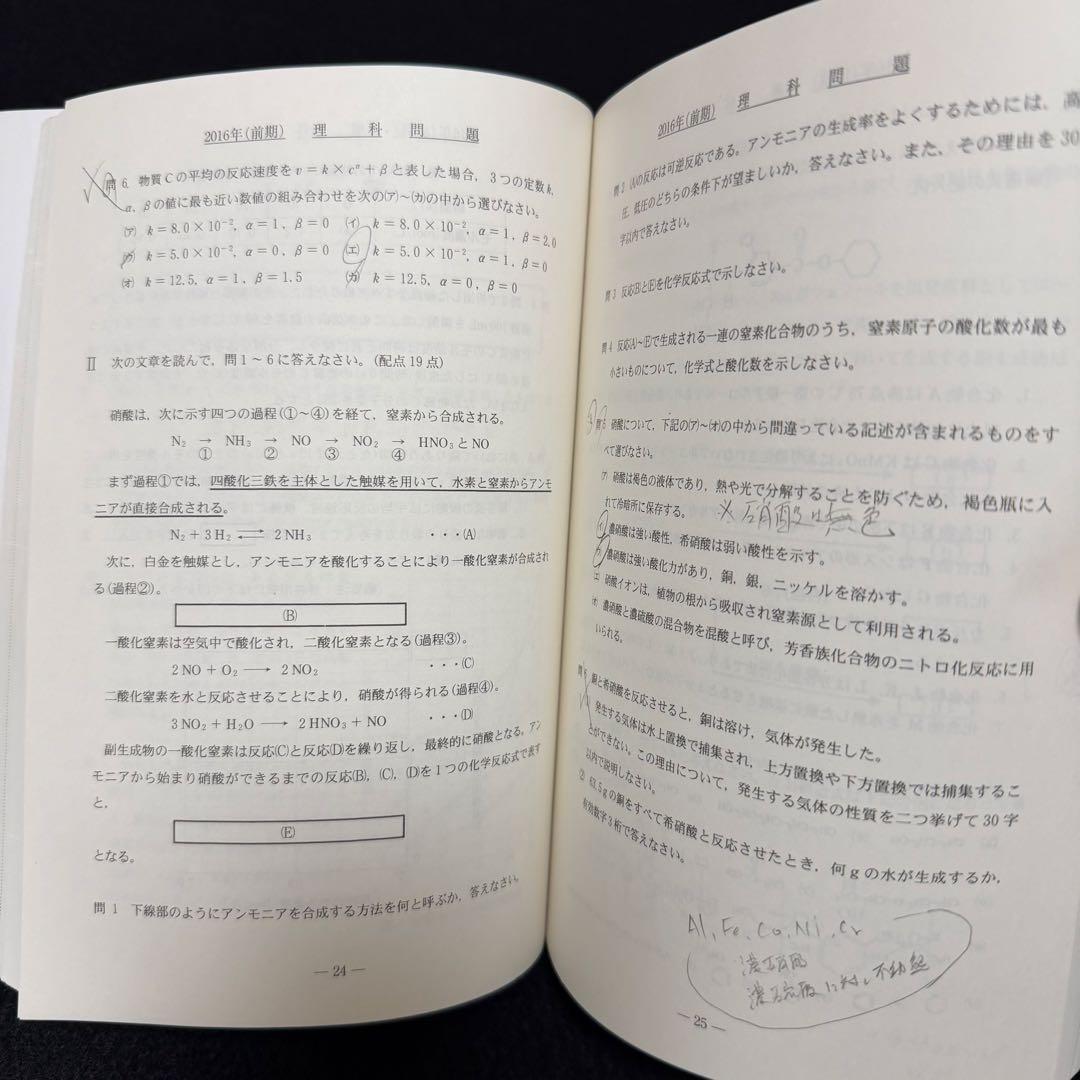 2016年(前期) 理科問題
問6. 物質Cの平均の反応速度を v = k × cα + β と表した場合, 3つの定数 k,
α, βの値に最も近い数値の組み合わせを次の(ア)~(カ)の中から選びなさい。
(ア) k = 8.0 × 10⁻², α = 1, β = 0 (イ) k = 8.0 × 10⁻², α = 1, β = 2.0
(ウ) k = 5.0 × 10⁻², α = 0, β = 0 (エ) k = 5.0 × 10⁻², α = 1, β = 0
(オ) k = 12.5, α = 1, β = 1.5 (カ) k = 12.5, α = 0, β = 0
Ⅱ 次の文章を読んで, 問1~6に答えなさい。(配点19点)
硝酸は, 次に示す四つの過程(①~④)を経て, 窒素から合成される。
N₂ → NH₃ → NO → NO₂ → HNO₃とNO
① ② ③ ④
まず過程①では, 四酸化三鉄を主体とした触媒を用いて, 水素と窒素からアンモ
ニアが直接合成される。
N₂ + 3H₂ ⇄ 2NH₃ ・・・(A)
次に, 白金を触媒とし, アンモニアを酸化することにより一酸化窒素が合成され
る(過程②)。
(B)
一酸化窒素は空気中で酸化され, 二酸化窒素となる(過程③)。
2NO + O₂ → 2NO₂ ・・・(C)
二酸化窒素を水と反応させることにより, 硝酸が得られる(過程④)。
3NO₂ + H₂O → 2HNO₃ + NO ・・・(D)
副生成物の一酸化窒素は反応(C)と反応(D)を繰り返し, 最終的に硝酸となる。アン
モニアから始まり硝酸ができるまでの反応(B), (C), (D)を1つの化学反応式で表す
と,
(E)
となる。
問1 下線部のようにアンモニアを合成する方法を何と呼ぶか, 答えなさい。
— 24 —
2016年(前期) 理科問題
問2 (A)の反応は可逆反応である。アンモニアの生成率をよくするためには, 高
圧, 低圧のどちらの条件下が望ましいか, 答えなさい。また, その理由を30
字以内で答えなさい。
問3 反応(B)と(E)を化学反応式で示しなさい。
問4 反応(A)~(E)で生成される一連の窒素化合物のうち, 窒素原子の酸化数が最も
小さいものについて, 化学式と酸化数を示しなさい。
問5 硝酸について, 下記の(ア)~(オ)の中から間違っている記述が含まれるものをす
べて選びなさい。
(ア) 硝酸は褐色の液体であり, 熱や光で分解することを防ぐため, 褐色瓶に入
れて冷暗所に保存する。
※硝酸は無色
(イ) 濃硝酸は強い酸性, 希硝酸は弱い酸性を示す。
(ウ) 濃硝酸は強い酸化力があり, 銅, 銀, ニッケルを溶かす。
(エ) 硝酸イオンは, 植物の根から吸収され窒素源として利用される。
(オ) 濃硝酸と濃硫酸の混合物を混酸と呼び, 芳香族化合物のニトロ化反応に用
いられる。
問6 銅と希硝酸を反応させると, 銅は溶け, 気体が発生した。
発生する気体は水上置換で捕集され, 上方置換や下方置換では捕集するこ
とができない。この理由について, 発生する気体の性質を二つ挙げて30字
以内で説明しなさい。
(2) 63.5gの銅をすべて希硝酸と反応させたとき, 何gの水が生成するか,
有効数字3桁で答えなさい。
Al, Fe, Co, Ni, Cr
濃硫酸に対し不動態
— 25 —